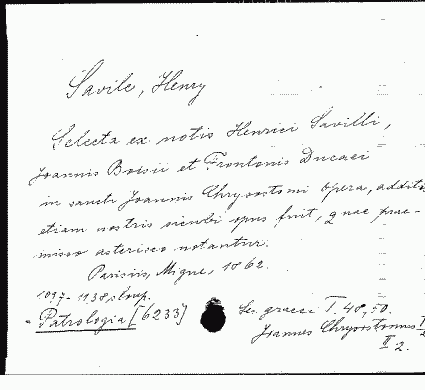 Savile, Henry
Selecta ex notis Henrici Savilli,
Joannis Boisii et Frontonis Ducaei
in sancti Joannis Chrysostomi opera, additis
etiam nostris sicubi opus fuit, quae prae-
misso asterisco notantur.
Parisiis, Migne, 1862.
1097-1138 sloup.
Patrologia [6233] Ser. graeca T. 48, 50.
Joannes Chrysostomus
II 2.